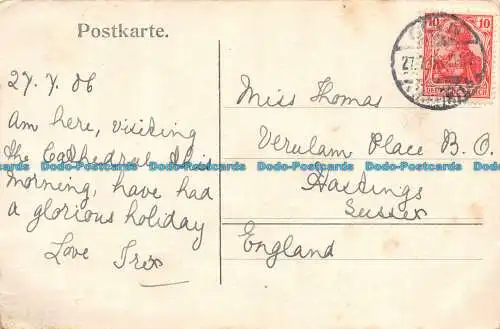 Postkarte.
27.7.06
Am here, visiting
the Cathedral this
morning, have had
a glorious holiday
Love Trix
Miss Thomas
Verulam Place B.O.
Hastings
Sussex
England
10 10
Dodo-Postcards Dodo-Postcards Dodo-Postcards Dodo-Postcards Dodo-Postcards